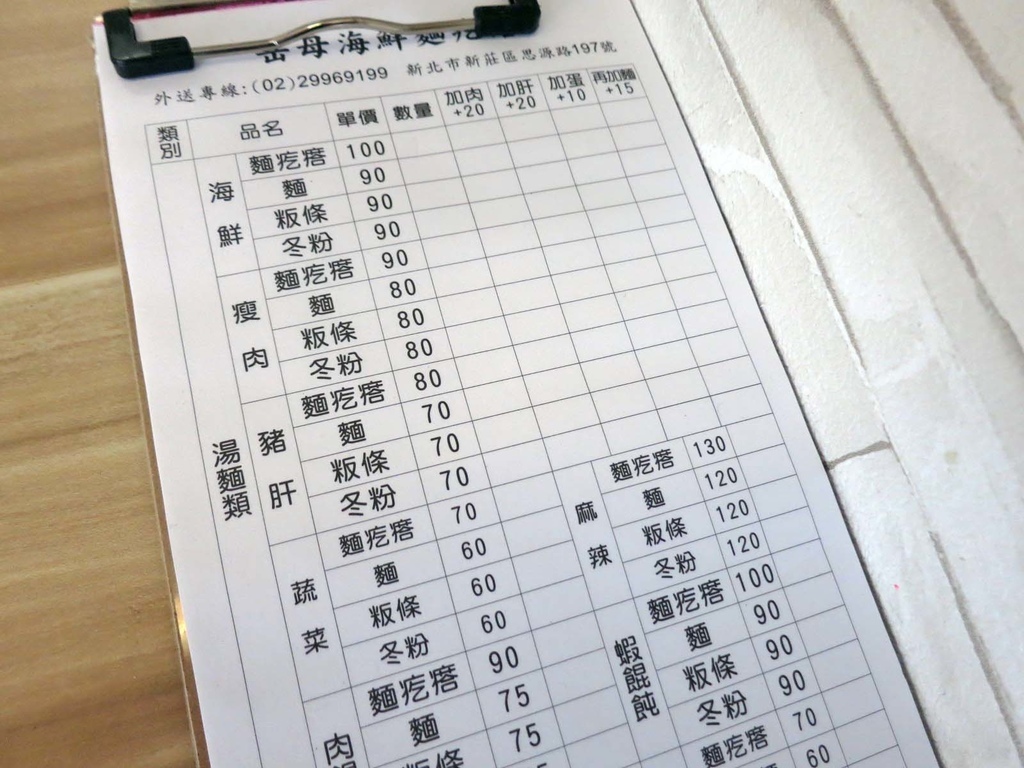 岳母海鮮麵疙
外送專線:(02)29969199 新北市新莊區思源路197號
類別 品名 單價 數量 加肉+20 加肝+20 加蛋+10 再加麵+15
湯麵類
海鮮 麵疙瘩 100
麵 90
粄條 90
冬粉 90
瘦肉 麵疙瘩 90
麵 80
粄條 80
冬粉 80
豬肝 麵疙瘩 80
麵 70
粄條 70
冬粉 70
蔬菜 麵疙瘩 70
麵 60
粄條 60
冬粉 60
麵疙瘩 90
肉 麵 75
粄條 75
麻辣 麵疙瘩 130
麵 120
粄條 120
冬粉 120
蝦餛飩 麵疙瘩 100
麵 90
粄條 90
冬粉 90
麵疙瘩 70
60